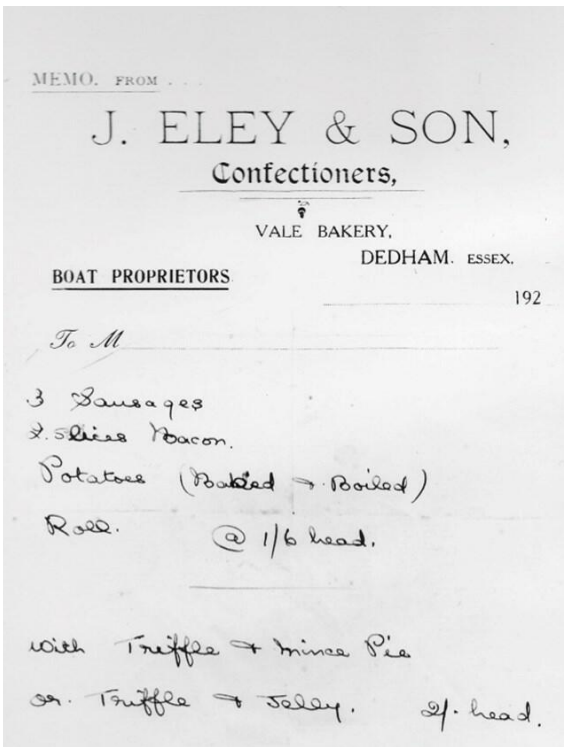 MEMO. FROM . . .
J. ELEY & SON,
Confectioners,
VALE BAKERY,
DEDHAM. ESSEX.
BOAT PROPRIETORS
192
To M
3 Sausages
2. slices Bacon.
Potatoes (Baked & Boiled)
Roll. @ 1/6 head.
with Triffle & Mince Pie
or. Triffle & Jelly. 2/- head.